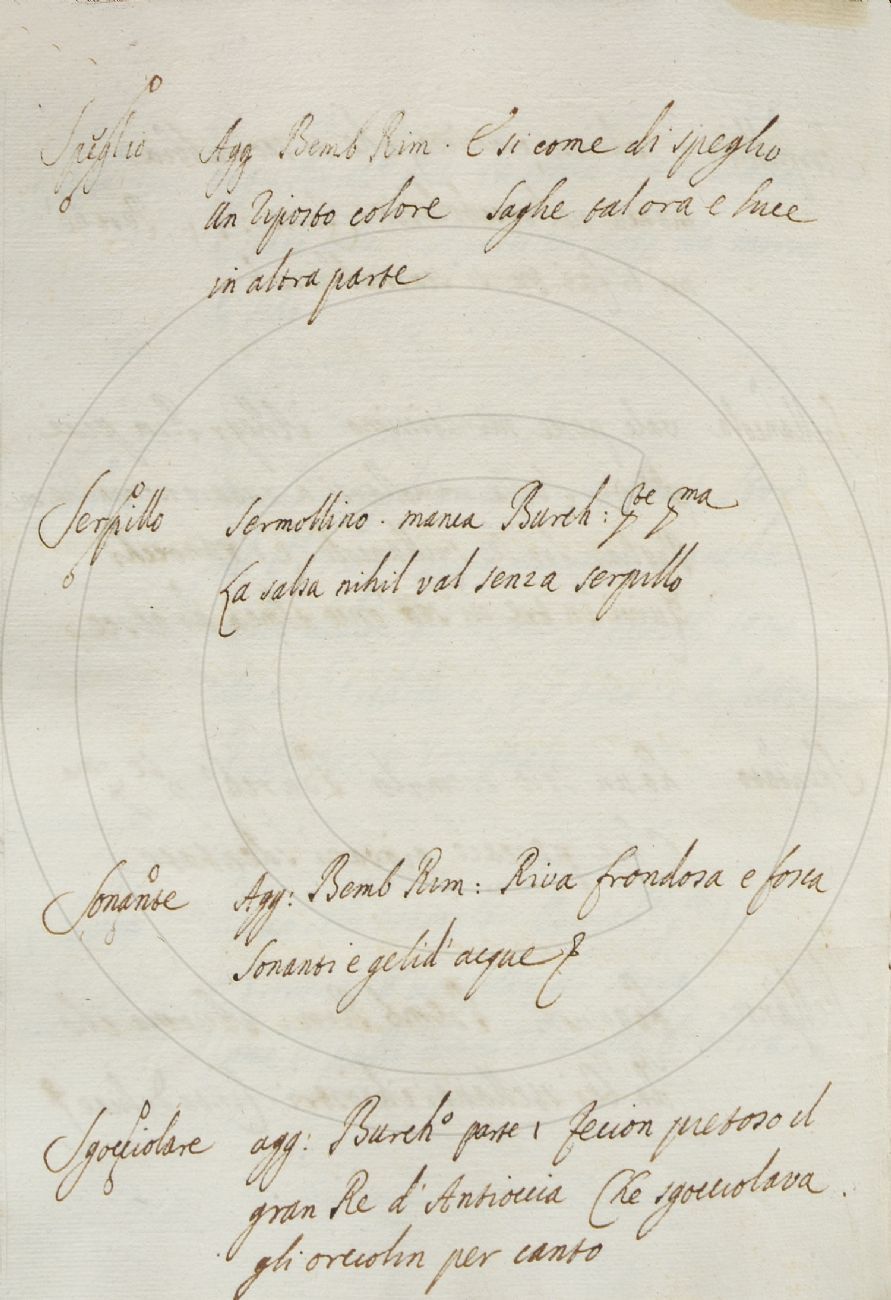 Speglio Agg Bemb Rim. E si come di speglio
un riposto colore Saghe talora e luce
in altra parte
Serpillo sermollino. manca Burch: pte pma
La salsa nihil val senza serpillo
Sonante Agg: Bemb Rim: Riva frondosa e fosca
Sonanti e gelid' acque
Sgocciolare agg: Burch° parte 1 Fecion pietoso il
gran Re d' Antioccia Che sgocciolava
gli orciolin per canto